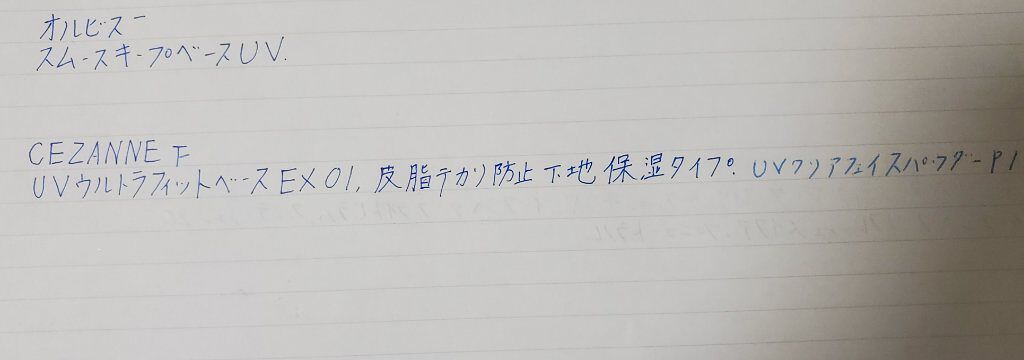 オルビス一
スムースキープベースUV.
CEZANNE 下
UVウルトラフィットベースEX01, 皮脂テカリ防止下地 保湿タイプ. UVクリアフェイスパウダーP1